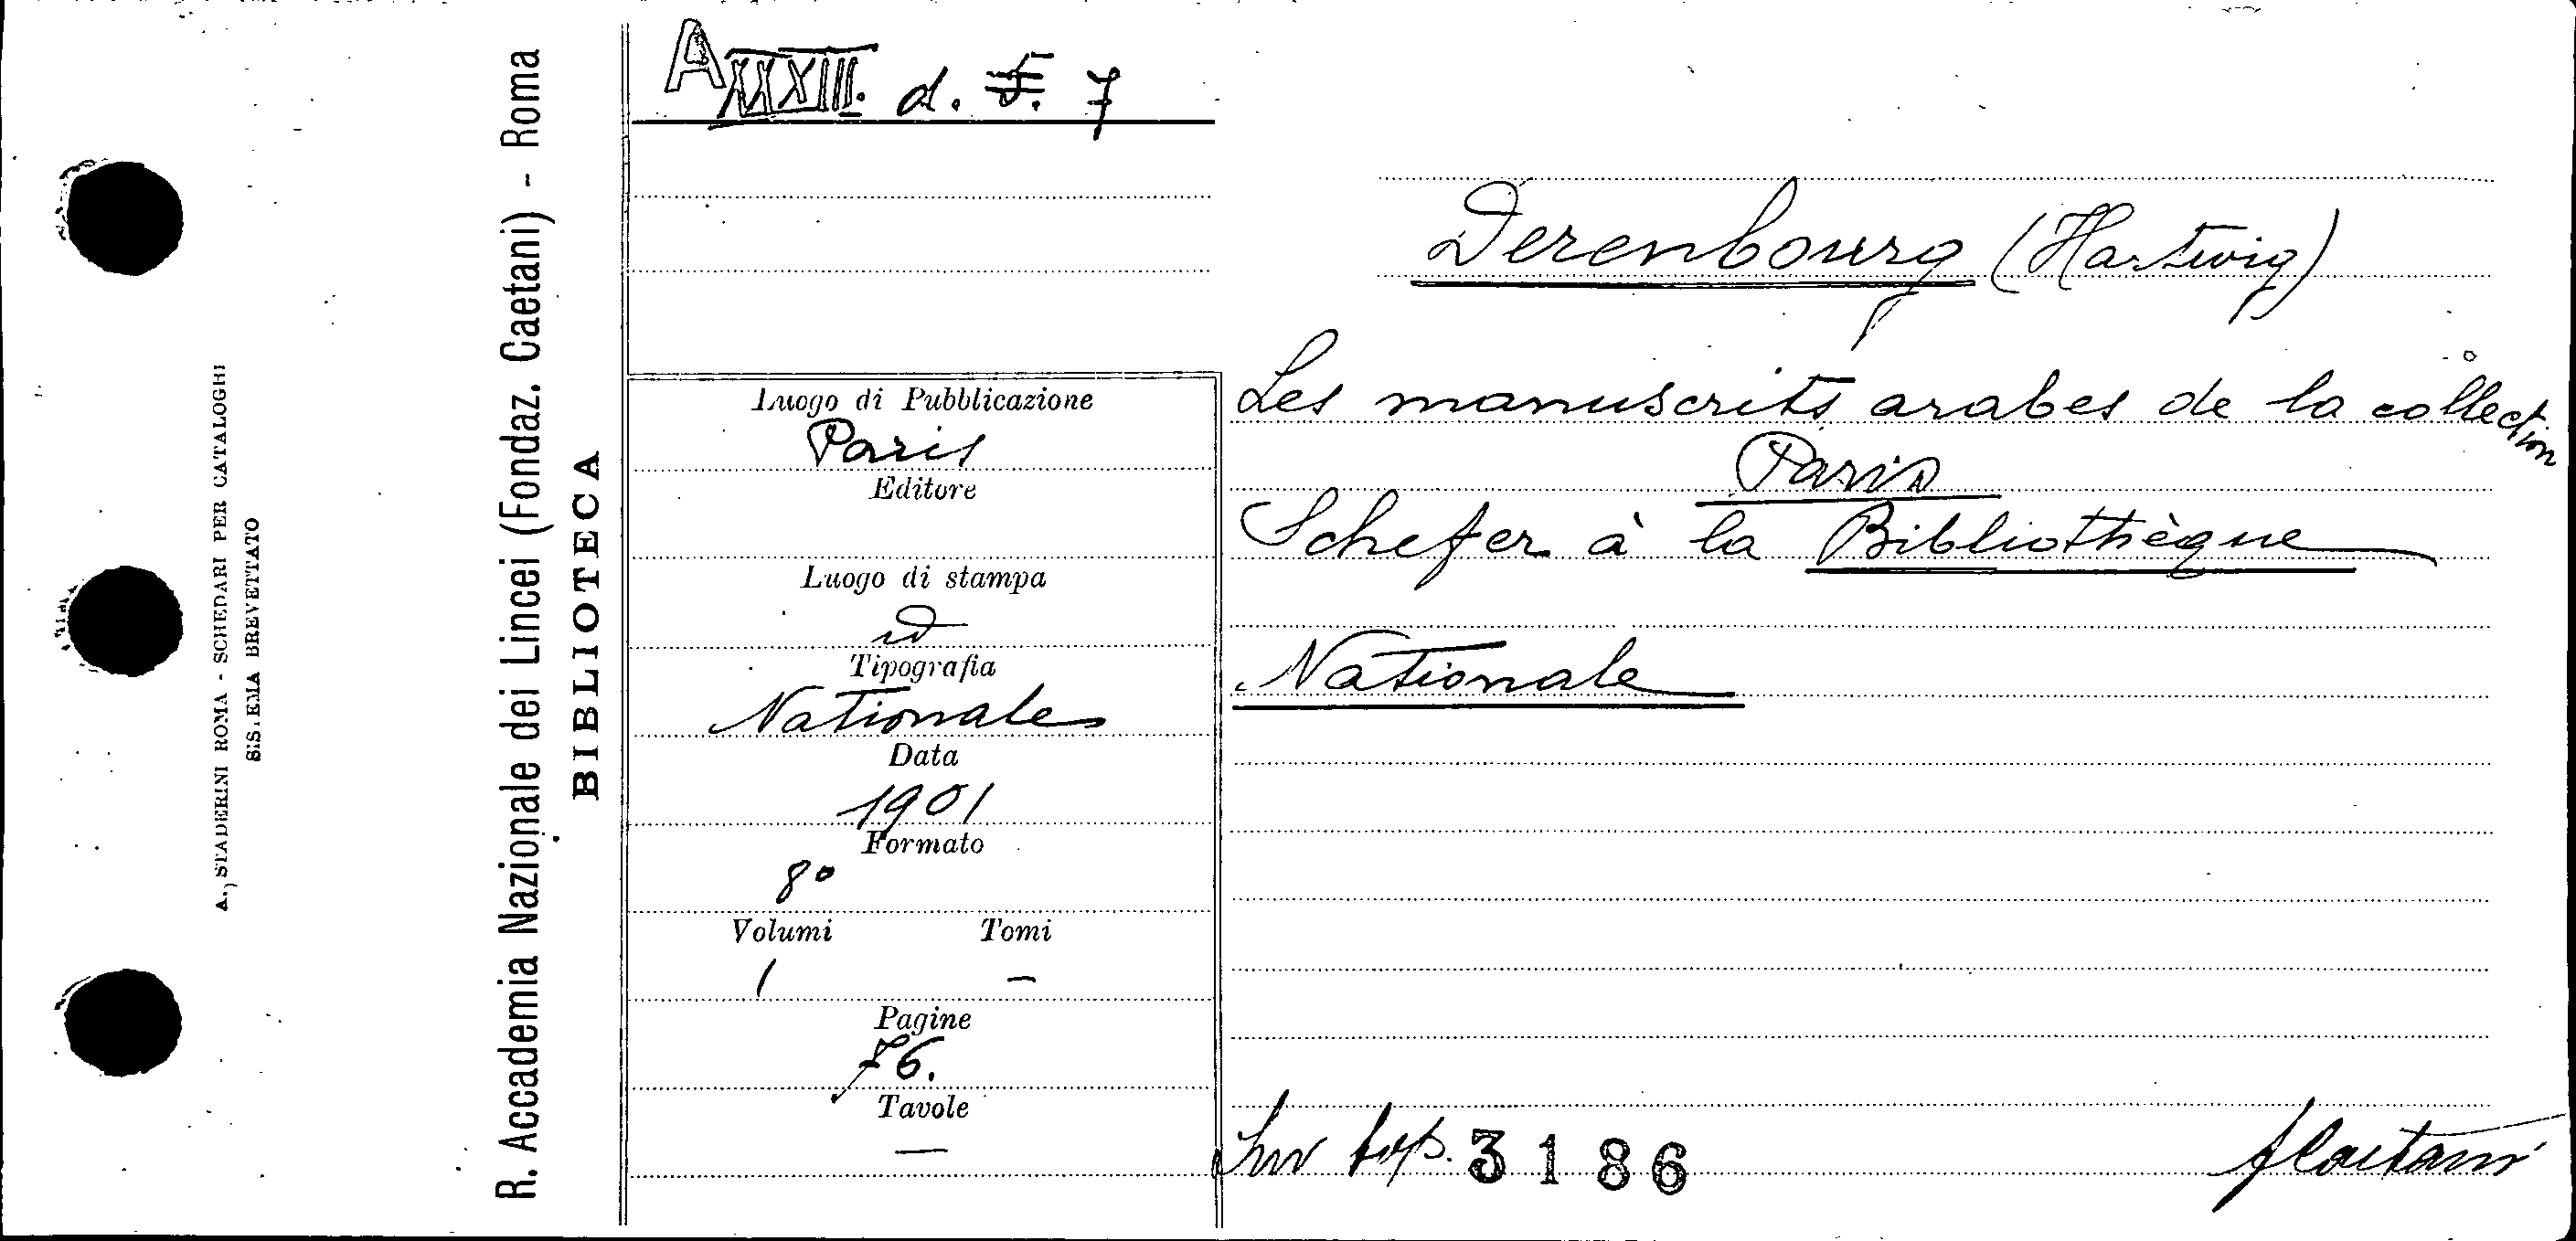 A XXXIII. d. 5. 7
A. STADERINI ROMA - SCHEDARI PER CATALOGHI
SISTEMA BREVETTATO
R. Accademia Nazionale dei Lincei (Fondaz. Caetani) - Roma
BIBLIOTECA
Luogo di Pubblicazione
Paris
Editore
Luogo di stampa
id
Tipografia
Nationale
Data
1901
Formato
8°
Volumi Tomi
1 —
Pagine
76.
Tavole
—
Derenbourg (Hartwig)
Les manuscrits arabes de la collection
Paris
Schefer à la Bibliothèque
Nationale
Inv. top. 3186